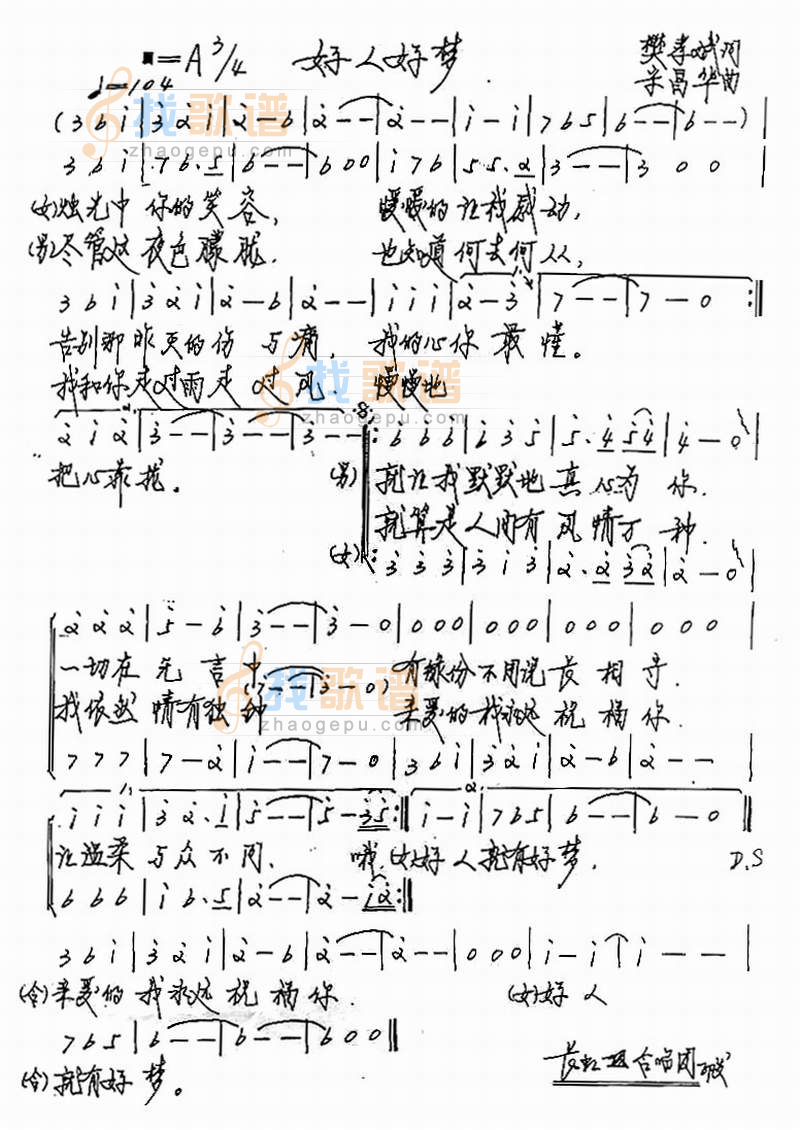 ■=A 3/4 好人好梦 樊孝斌词
♩=104 宋昌华曲
(3 6 i | 3 2 i | 2 — 6 | 2 — — | 2 — — | i — i | 7 6 5 | 6 — — | 6 — —) |
3 6 i | 7 6. 5 | 6 — — | 6 0 0 | i 7 6 | 5. 5. 2 | 3 — — | 3 0 0 |
(女)烛光中你的笑容, 暖暖的让我感动,
(男)尽管这夜色朦胧. 也知道何去何从,
3 6 i | 3 2 i | 2 — 6 | 2 — — | i i i | 2 — 3 | 7 — — | 7 — 0 :||
告别那昨天的伤与痛, 我的心你最懂。
我和你走过雨走过风. 慢慢地
2 i 2 | 3 — — | 3 — — | 3 — — ||: 6 6 6 | 6 3 5 | 5. 4 5 4 | 4 — 0 |
把心靠拢。 (男) 就让我默默地真心为你.
就算是人间有风情万种.
(女) : 3 3 3 | 3 i 3 | 2. 2 3 2 | 2 — 0 |
2 2 2 | 5 — 6 | 3 — — | 3 — 0 | 0 0 0 | 0 0 0 | 0 0 0 | 0 0 0 |
一切在无言中 有缘份不用说长相守.
(7 — — | 3 — 0)
我依然情有独钟 亲爱的我永远祝福你.
7 7 7 | 7 — 2 | i — — | 7 — 0 | 3 6 i | 3 2 i | 2 — 6 | 2 — — |
i i i | 3 2. i | 5 — — | 5 — 3 5 :|| i — i | 7 6 5 | 6 — — | 6 — 0 ||
让温柔与众不同. 哦,(女)好人就有好梦. D.S
6 6 6 | i 6. 5 | 2 — — | 2 — i 2 :||
3 6 i | 3 2 i | 2 — 6 | 2 — — | 2 — — | 0 0 0 | i — i | i — — |
(合)亲爱的我永远祝福你. (女)好人
7 6 5 | 6 — — | 6 — — | 6 0 0 ||
(合)就有好梦。
找歌谱
zhaogepu.com
找歌谱
zhaogepu.com
找歌谱
zhaogepu.com